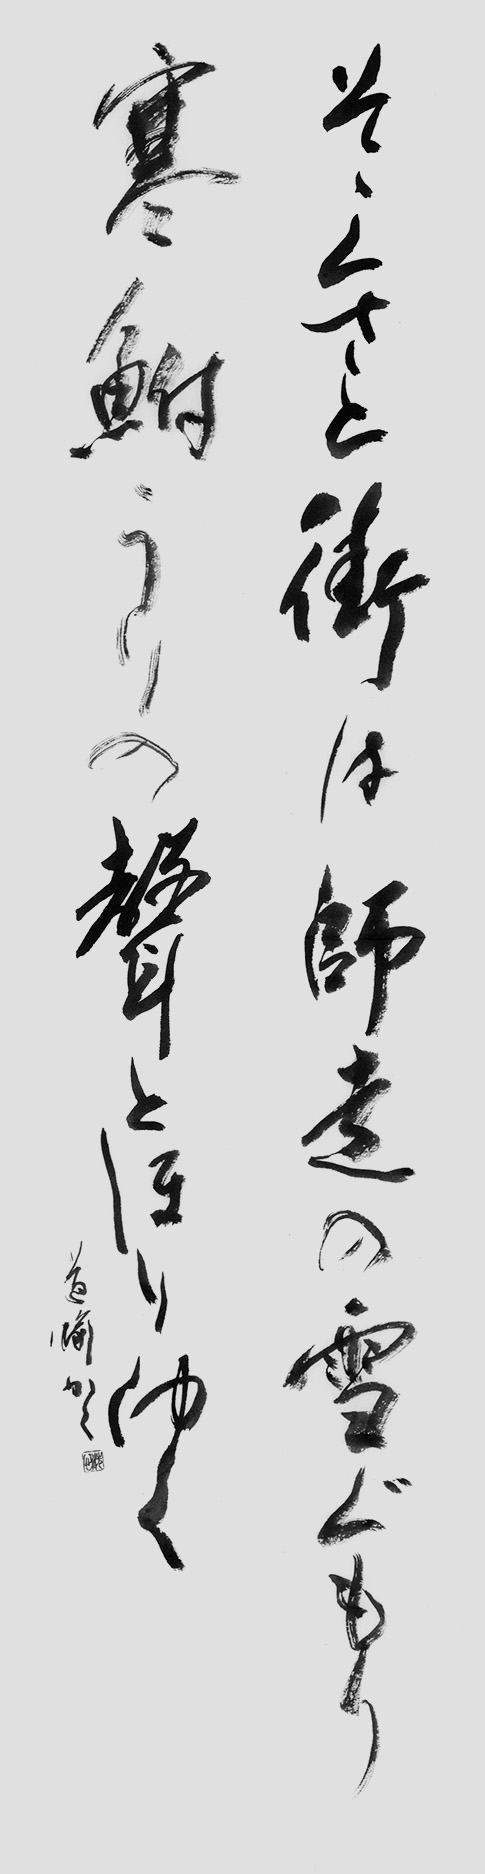 そゝくさと街は師走の雪ぐもり
寒鮒うりの聲とほりゆく